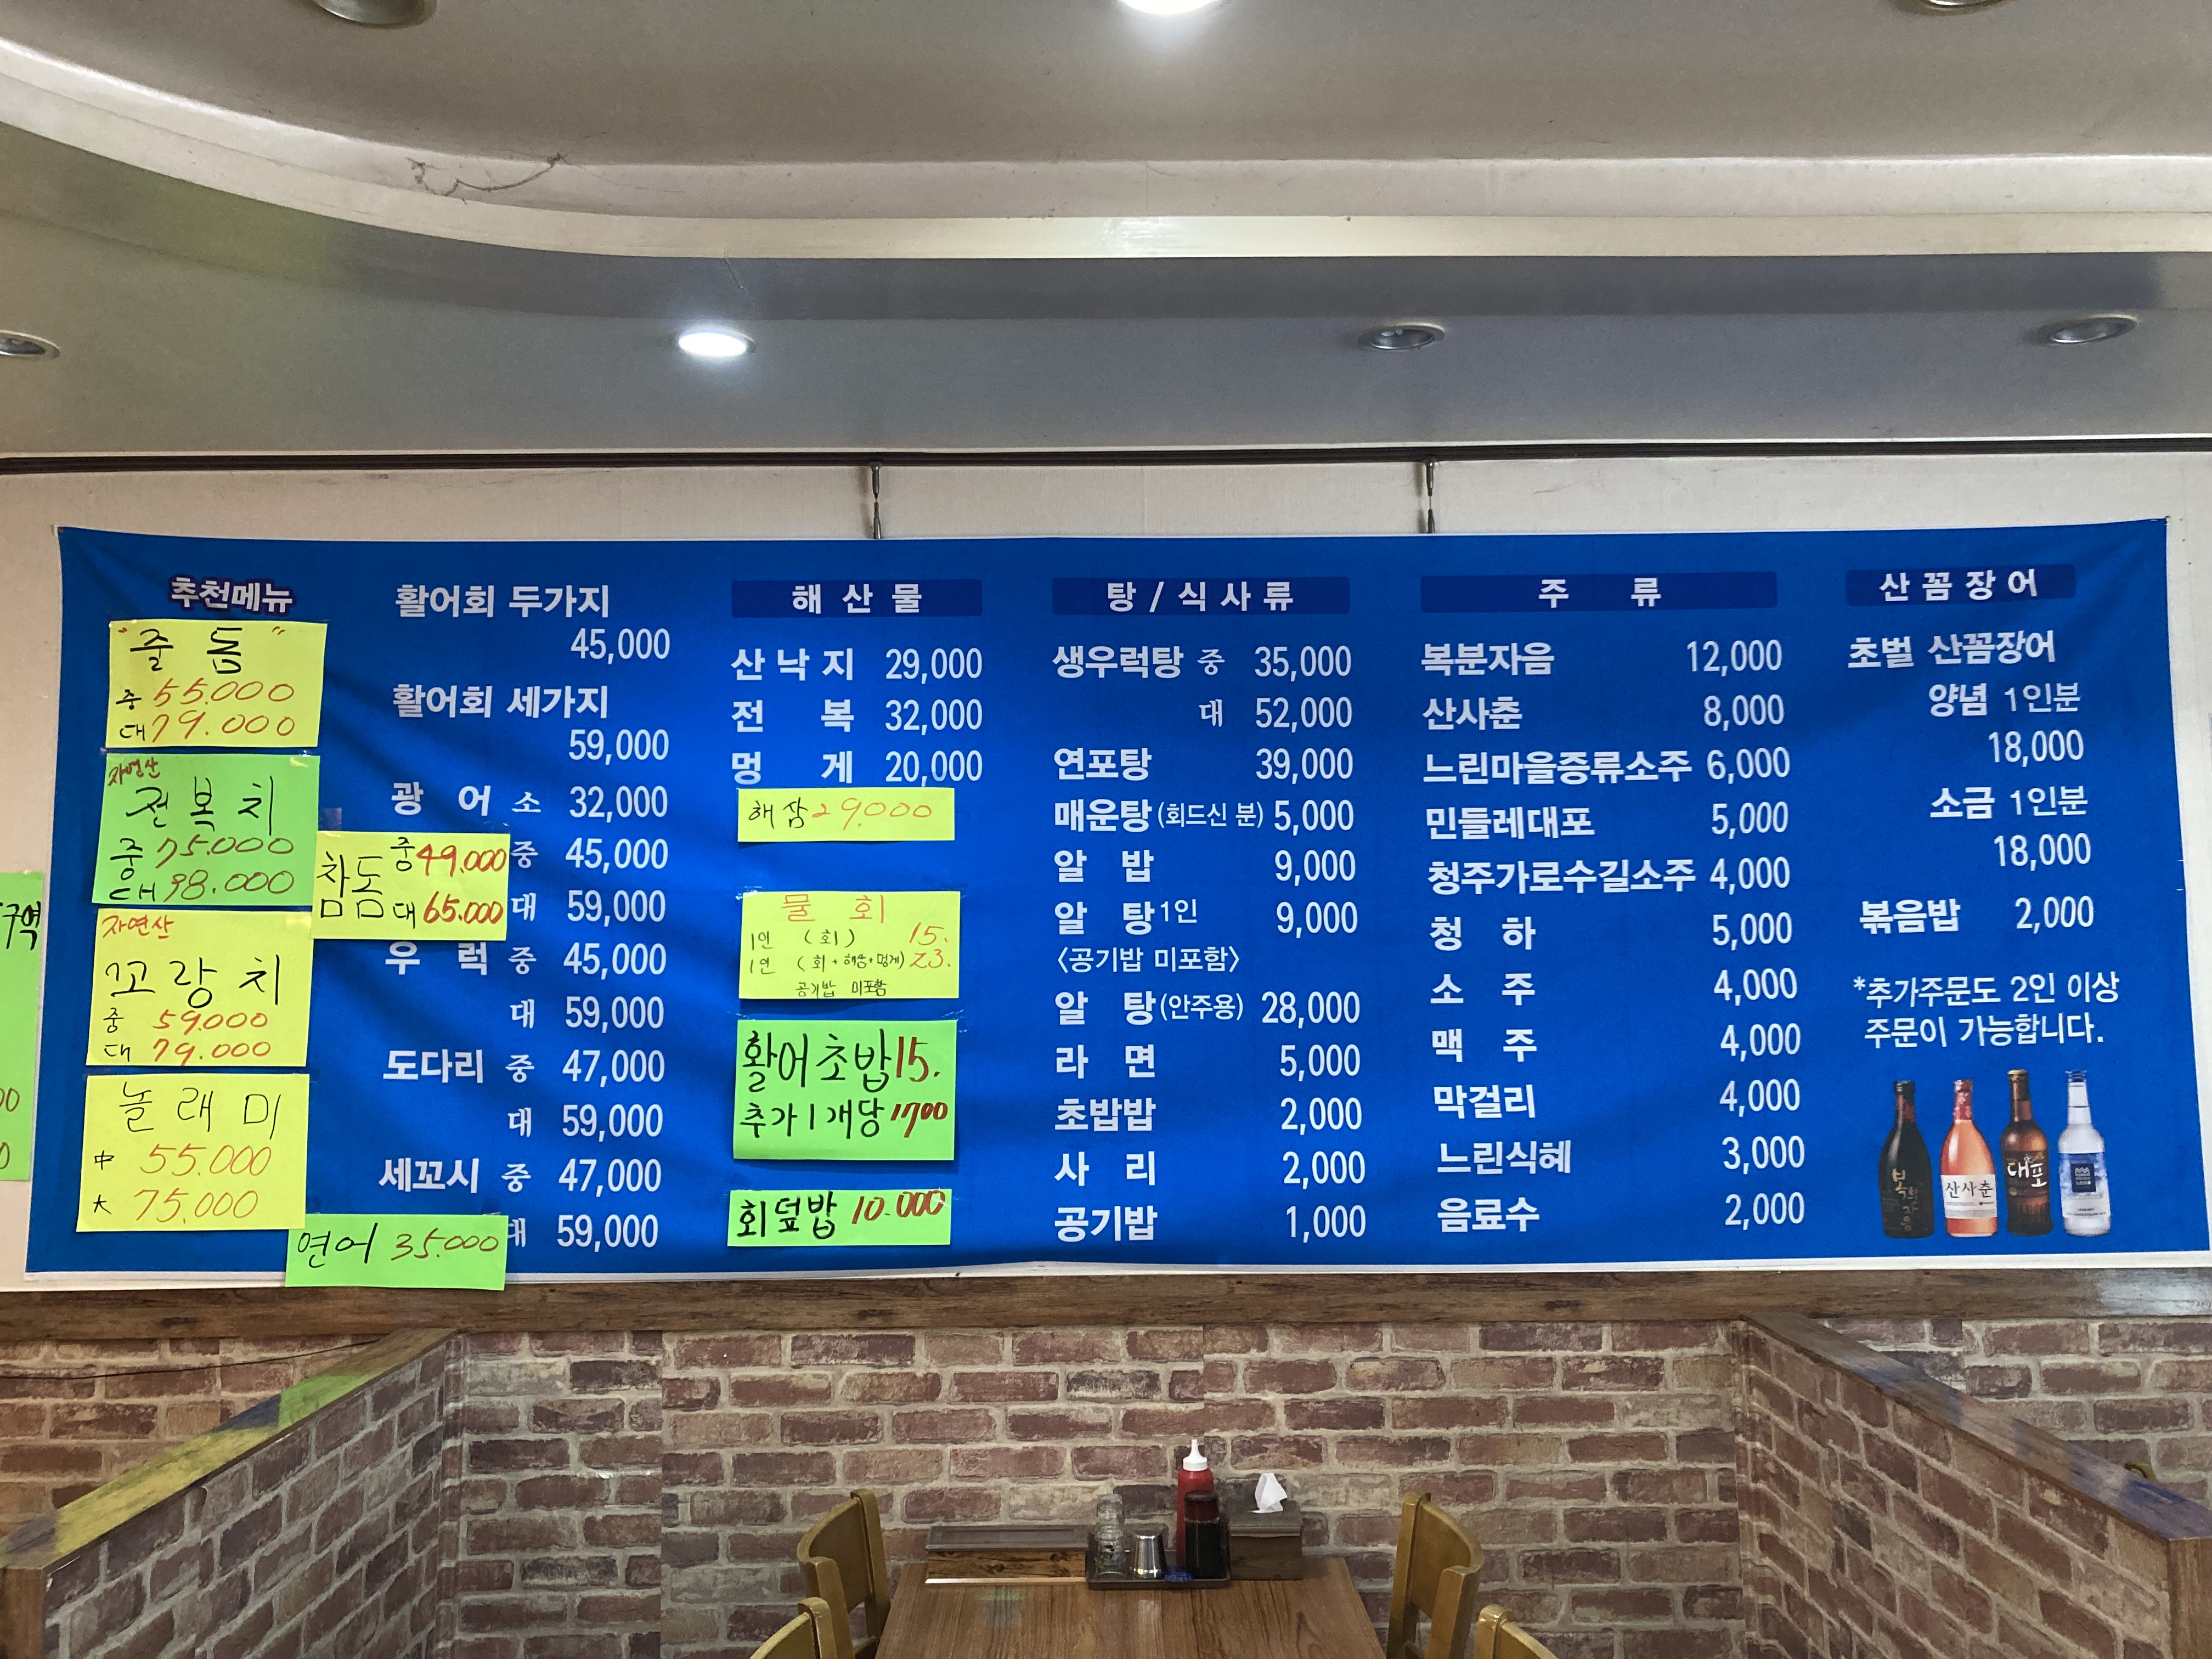 추천메뉴
"줄 돔"
중 55.000
대 79.000
자연산
전복치
중 75.000
대 98.000
자연산
꼬랑치
중 59.000
대 79.000
놀래미
中 55.000
大 75.000
활어회 두가지
45,000
활어회 세가지
59,000
광 어 소 32,000
중 45,000
대 59,000
참돔 중 49.000
대 65.000
우 럭 중 45,000
대 59,000
도다리 중 47,000
대 59,000
세꼬시 중 47,000
대 59,000
연어 35.000
해 산 물
산 낙 지 29,000
전 복 32,000
멍 게 20,000
해삼 29.000
물 회
1인 (회) 15.
1인 (회+해삼+멍게) 23.
공기밥 미포함
활어초밥 15.
추가 1개당 1700
회덮밥 10.000
탕 / 식 사 류
생우럭탕 중 35,000
대 52,000
연포탕 39,000
매운탕 (회드신 분) 5,000
알 밥 9,000
알 탕 1인 9,000
〈공기밥 미포함〉
알 탕 (안주용) 28,000
라 면 5,000
초밥밥 2,000
사 리 2,000
공기밥 1,000
주 류
복분자음 12,000
산사춘 8,000
느린마을증류소주 6,000
민들레대포 5,000
청주가로수길소주 4,000
청 하 5,000
소 주 4,000
맥 주 4,000
막걸리 4,000
느린식혜 3,000
음료수 2,000
산 꼼 장 어
초벌 산꼼장어
양념 1인분
18,000
소금 1인분
18,000
볶음밥 2,000
*추가주문도 2인 이상
주문이 가능합니다.
산사춘
대포